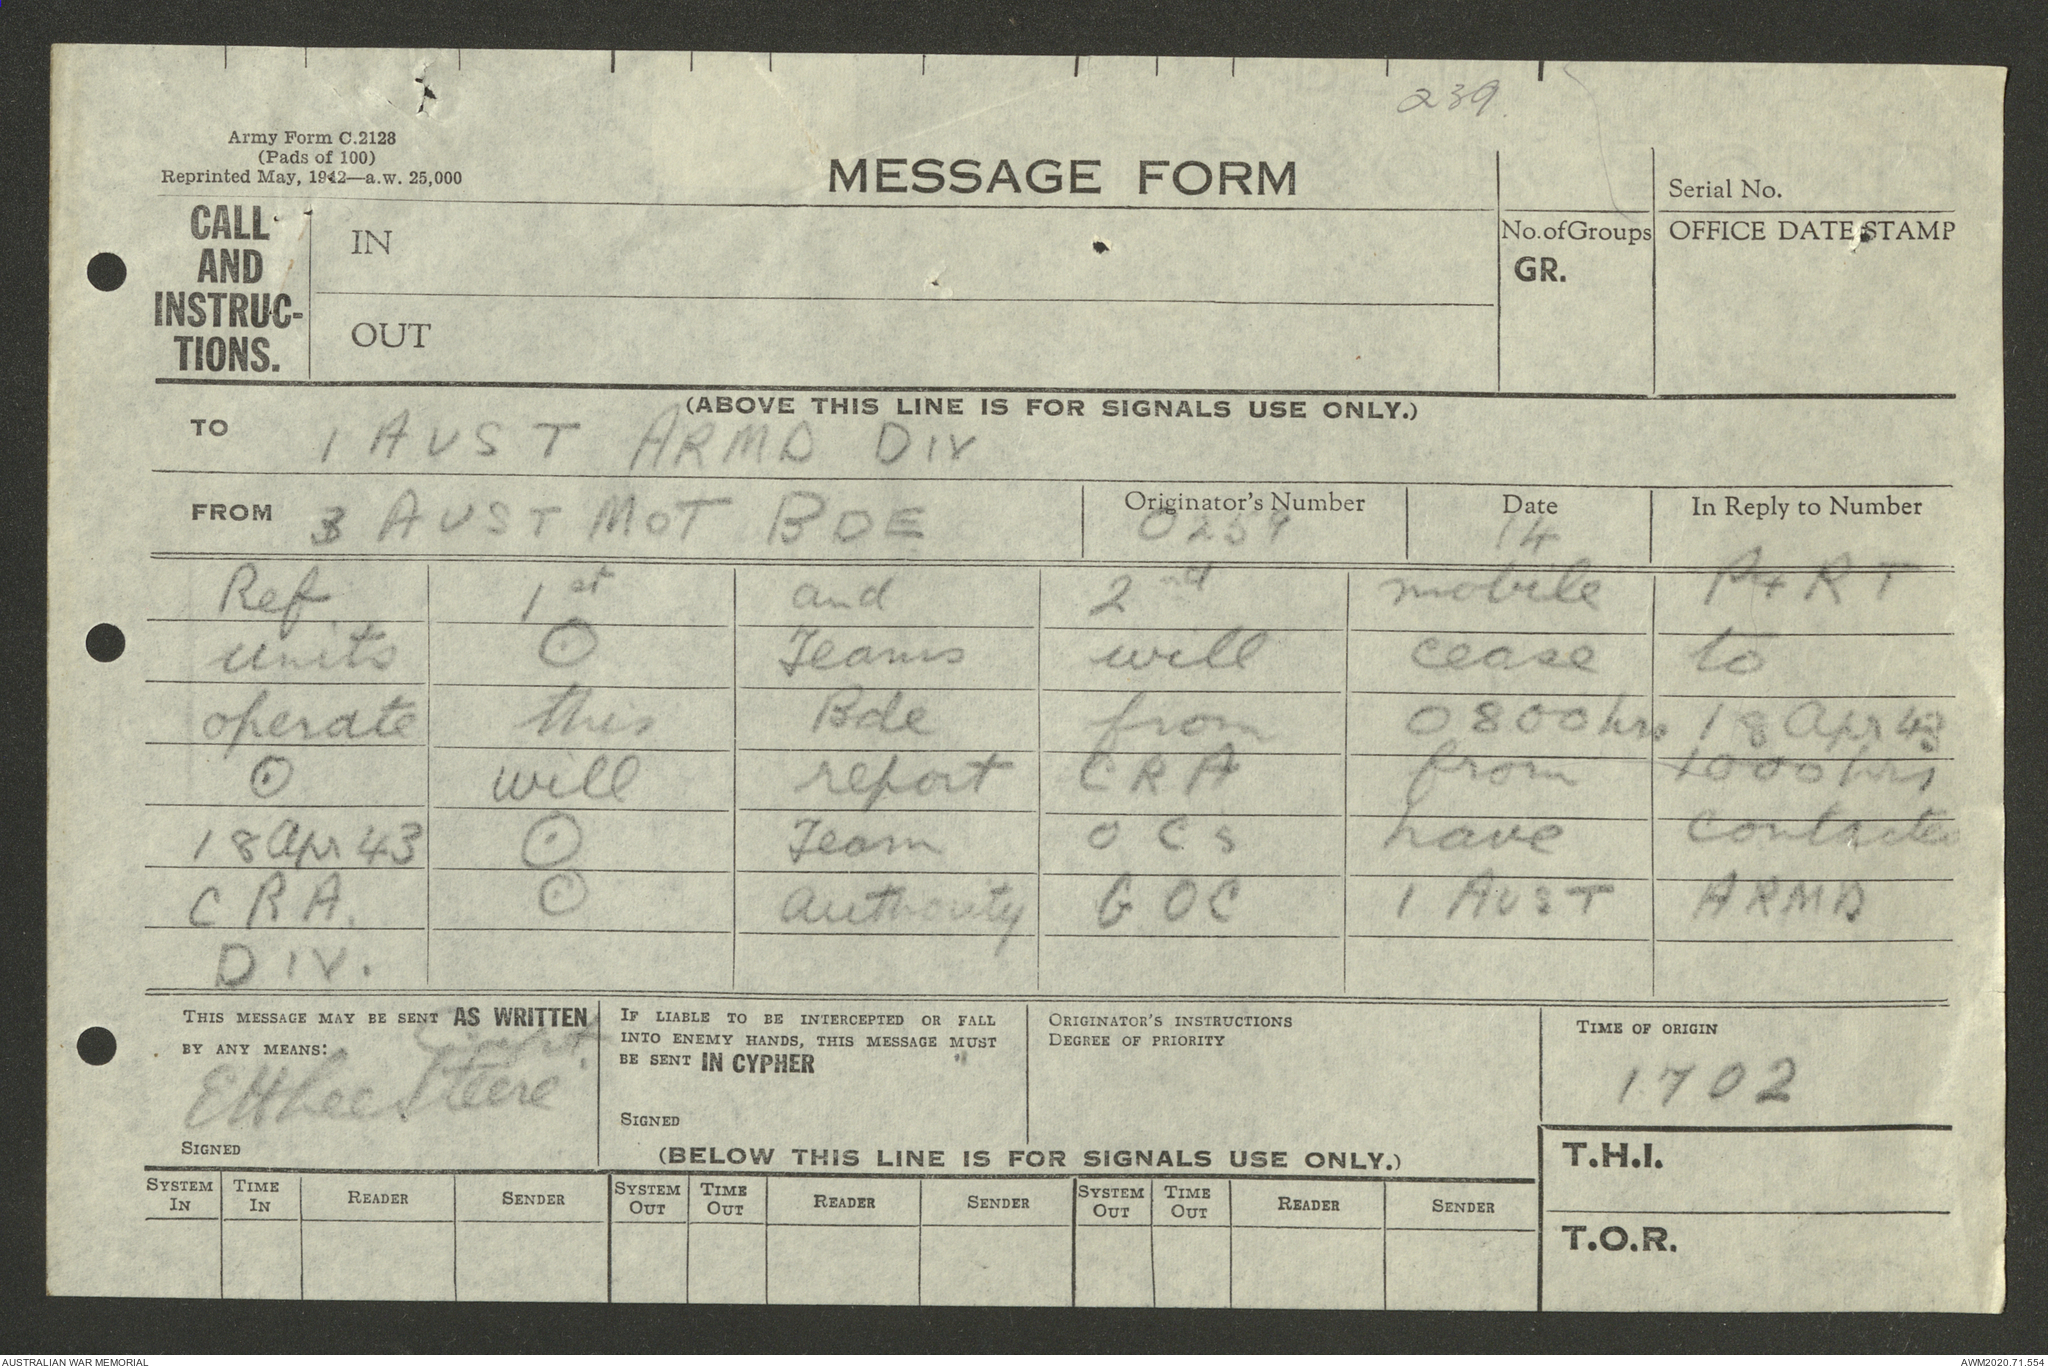 239.
Army Form C.2128
(Pads of 100)
Reprinted May, 1942—a.w. 25,000
MESSAGE FORM
Serial No.
CALL AND INSTRUC-TIONS.
IN
OUT
No. of Groups
GR.
OFFICE DATE STAMP
(ABOVE THIS LINE IS FOR SIGNALS USE ONLY.)
TO 1 AUST ARMD DIV
FROM 3 AUST MOT BDE
Originator's Number 0259
Date 14
In Reply to Number
Ref 1st and 2nd mobile P & RT
units ⊙ Teams will cease to
operate this Bde from 0800hrs 18 Apr 43
⊙ will report CRA from 1000hrs
18 Apr 43 ⊙ Team OCs have contacted
CRA. ⊙ authority GOC 1 AUST ARMD
DIV.
THIS MESSAGE MAY BE SENT AS WRITTEN
BY ANY MEANS:
Capt.
EHLee Steere
SIGNED
IF LIABLE TO BE INTERCEPTED OR FALL
INTO ENEMY HANDS, THIS MESSAGE MUST
BE SENT IN CYPHER
SIGNED
ORIGINATOR'S INSTRUCTIONS
DEGREE OF PRIORITY
TIME OF ORIGIN
1702
(BELOW THIS LINE IS FOR SIGNALS USE ONLY.)
T.H.I.
T.O.R.
SYSTEM IN TIME IN READER SENDER SYSTEM OUT TIME OUT READER SENDER SYSTEM OUT TIME OUT READER SENDER
AUSTRALIAN WAR MEMORIAL
AWM2020.71.554